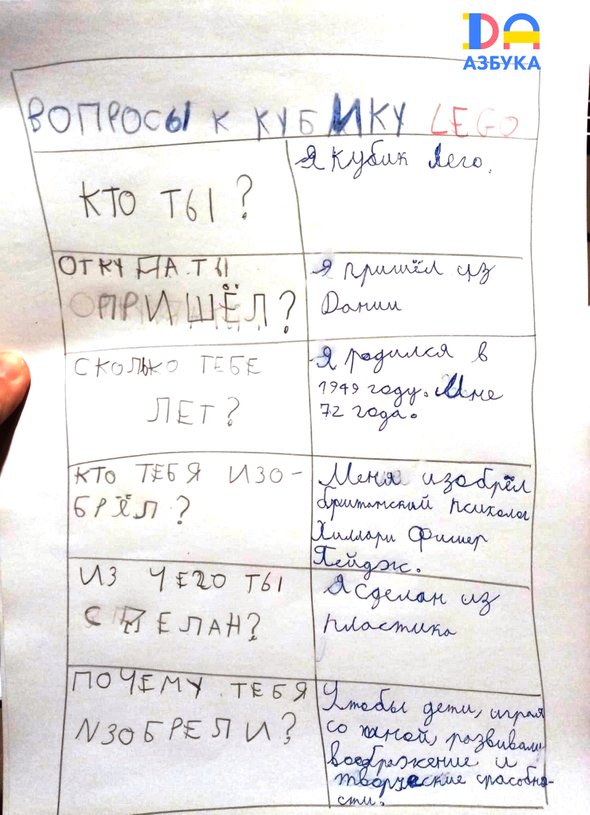 DA
АЗБУКА
ВОПРОСЫ К КУБИКУ LEGO
КТО ТЫ?
Я кубик Лего.
ОТКУДА ТЫ
ПРИШЁЛ?
Я пришёл из
Дании
СКОЛЬКО ТЕБЕ
ЛЕТ?
Я родился в
1949 году. Мне
72 года.
КТО ТЕБЯ ИЗО-
БРЁЛ?
Меня изобрёл
британский психолог
Хиллари Фишер
Пейдж.
ИЗ ЧЕГО ТЫ
СДЕЛАН?
Я сделан из
пластика
ПОЧЕМУ ТЕБЯ
ИЗОБРЕЛИ?
Чтобы дети, играя
со мной, развивали
воображение и
творческие способно-
сти.